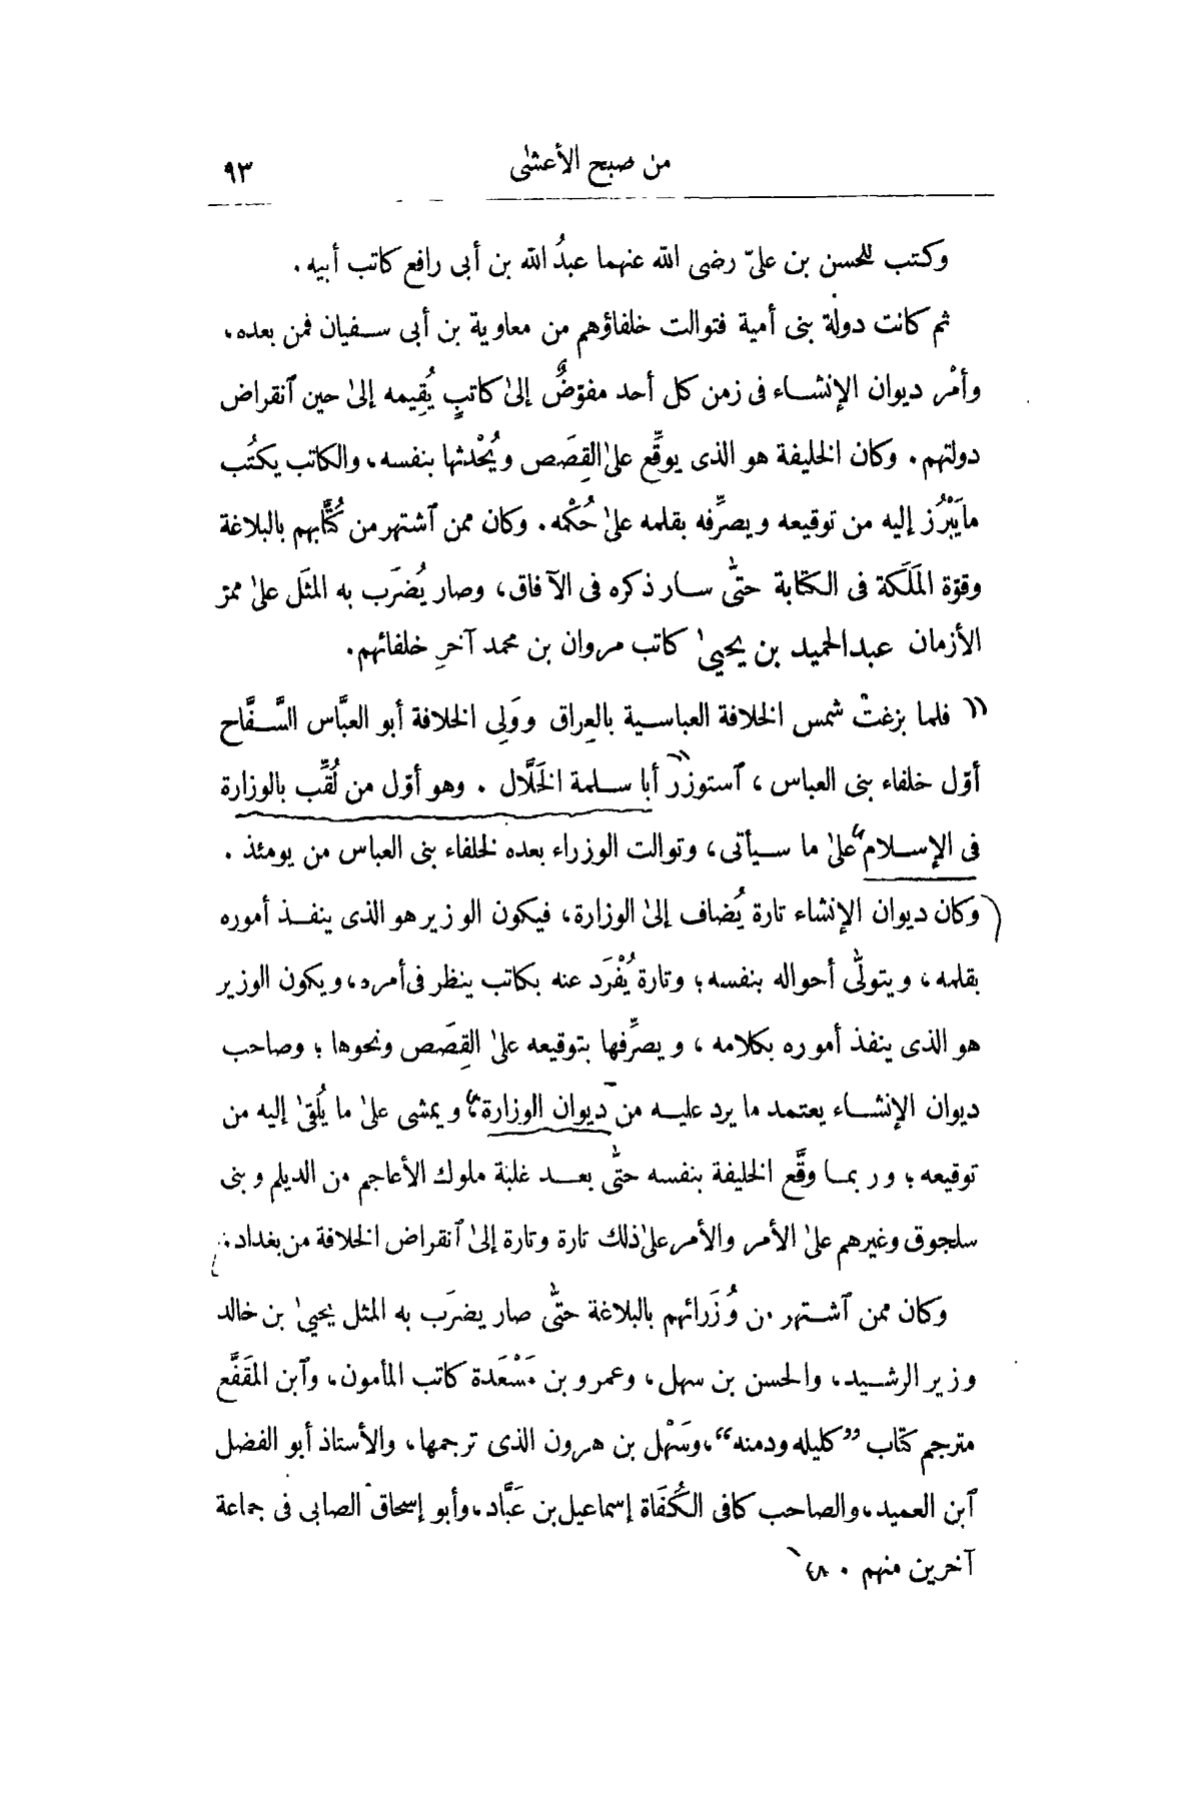 من صبح الأعشىٰ ٩٣
وكتب للحسن بن علىّ رضى الله عنهما عبدُ الله بن أبى رافع كاتب أبيه .
ثم كانت دولة بنى أمية فتوالت خلفاؤهم من معاوية بن أبى سفيان فمن بعده،
وأمْر ديوان الإنشاء فى زمن كل أحد مفوّضٌ إلىٰ كاتبٍ يُقِيمه إلىٰ حين ٱنقراض
دولتهم . وكان الخليفة هو الذى يوقِّع علىٰ القِصَص ويُحْدثها بنفسه، والكاتب يكتُب
مايَبْرُز إليه من توقيعه ويصرِّفه بقلمه علىٰ حُكْمه . وكان ممن ٱشتهر من كُتَّابهم بالبلاغة
وقوّة المَلَكة فى الكتابة حتّٰى سار ذكره فى الآفاق، وصار يُضرَب به المثَل علىٰ ممرّ
الأزمان عبدالحميد بن يحيىٰ كاتب مروان بن محمد آخرِ خلفائهم .
فلما بزغتْ شمس الخلافة العباسية بالعِراق ووَلِى الخلافة أبو العبَّاس السَّفَّاح
أوّل خلفاء بنى العباس ، ٱستوزر أبا سلمة الخَلَّال . وهو أوّل من لُقِّب بالوزارة
فى الإسلام علىٰ ما سيأتى، وتوالت الوزراء بعده لخلفاء بنى العباس من يومئذ .
وكان ديوان الإنشاء تارة يُضاف إلىٰ الوزارة، فيكون الوزير هو الذى ينفذ أموره
بقلمه، ويتولّٰى أحواله بنفسه؛ وتارة يُفْرَد عنه بكاتب ينظر فى أمره، ويكون الوزير
هو الذى ينفذ أموره بكلامه ، ويصرِّفها بتوقيعه علىٰ القِصَص ونحوها ؛ وصاحب
ديوان الإنشاء يعتمد ما يرد عليه من ديوان الوزارة، ويمشى علىٰ ما يُلقىٰ إليه من
توقيعه ؛ وربما وقَّع الخليفة بنفسه حتّٰى بعد غلبة ملوك الأعاجم من الديلم وبنى
سلجوق وغيرهم علىٰ الأمر والأمر علىٰ ذلك تارة وتارة إلىٰ ٱنقراض الخلافة من بغداد .
وكان ممن ٱشتهر من وُزَرائهم بالبلاغة حتّٰى صار يضرَب به المثل يحيىٰ بن خالد
وزير الرشيد، والحسن بن سهل، وعمرو بن مَسْعَدة كاتب المأمون، وٱبن المقَفَّع
مترجم كتاب ”كليله ودمنه“، وسَهْل بن هرون الذى ترجمها، والأستاذ أبو الفضل
ٱبن العميد، والصاحب كافى الكُفَاة إسماعيل بن عَبَّاد، وأبو إسحاق الصابى فى جماعة
آخرين منهم .